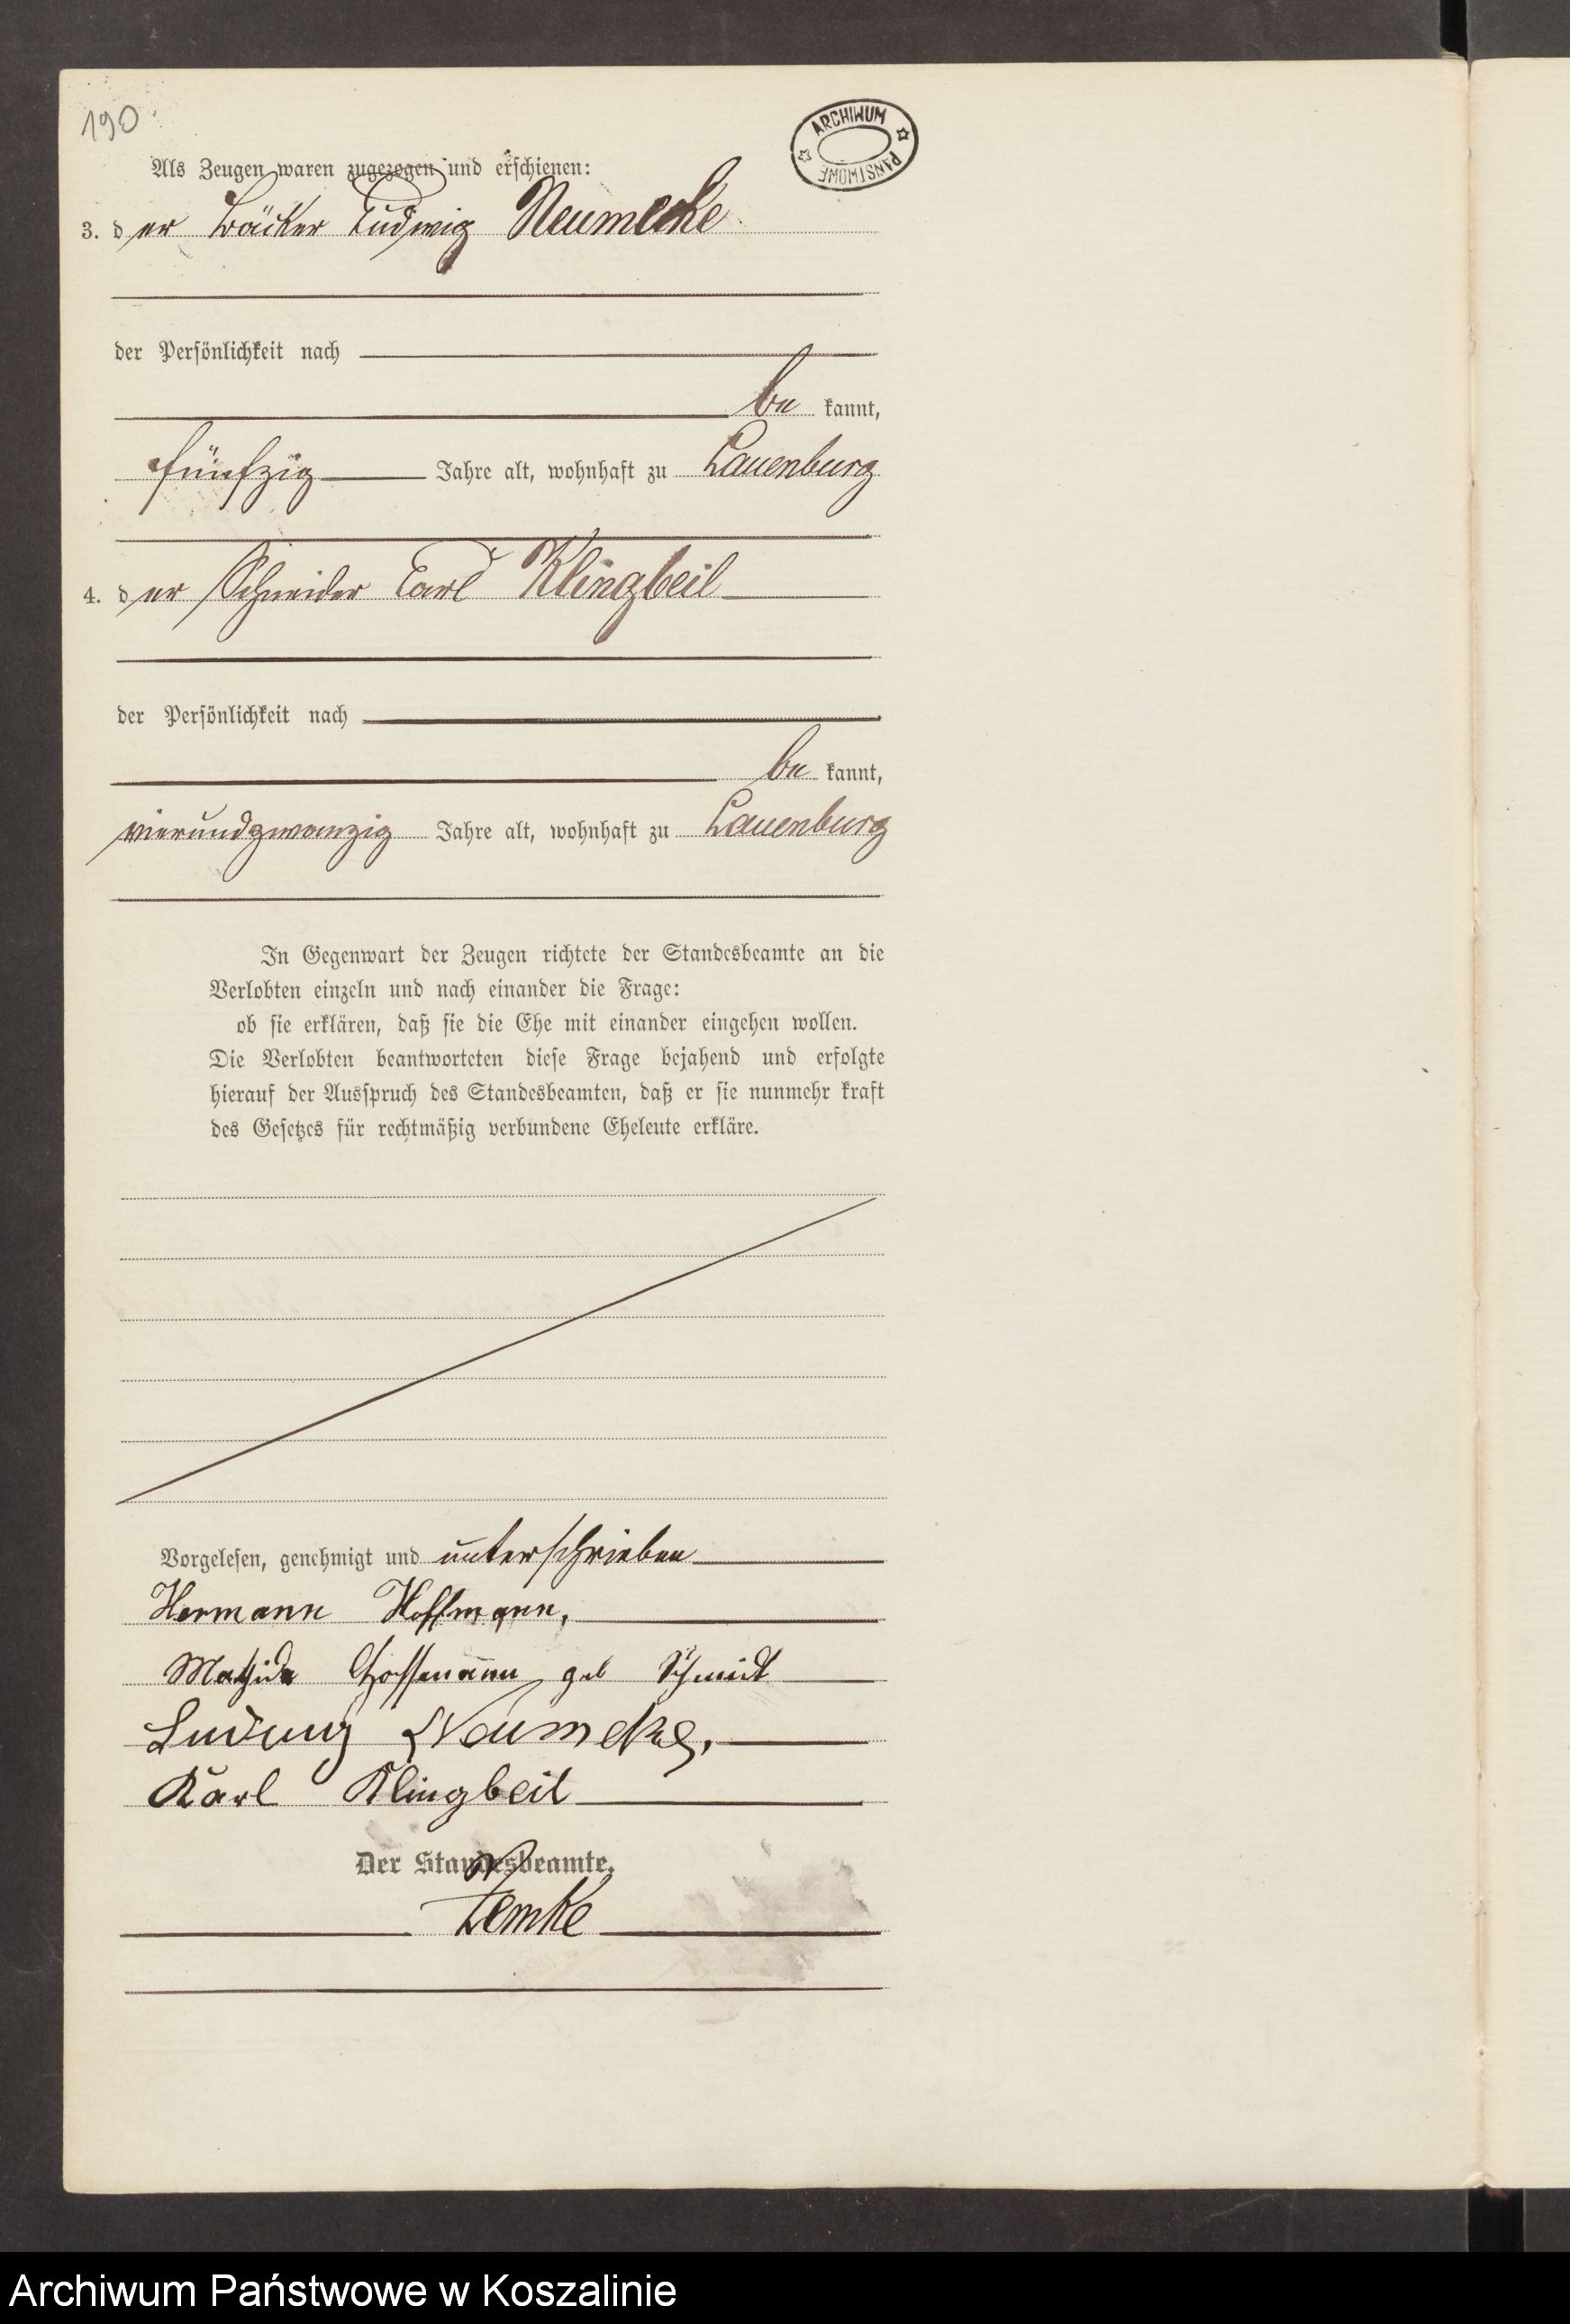 190
ARCHIWUM PAŃSTWOWE
Als Zeugen waren zugezogen und erschienen:
3. der Bäcker Ludwig Neumcke
der Persönlichkeit nach
be kannt,
fünfzig Jahre alt, wohnhaft zu Lauenburg
4. der Schneider Carl Klingbeil
der Persönlichkeit nach
be kannt,
vierundzwanzig Jahre alt, wohnhaft zu Lauenburg
In Gegenwart der Zeugen richtete der Standesbeamte an die
Verlobten einzeln und nach einander die Frage:
ob sie erklären, daß sie die Ehe mit einander eingehen wollen.
Die Verlobten beantworteten diese Frage bejahend und erfolgte
hierauf der Ausspruch des Standesbeamten, daß er sie nunmehr kraft
des Gesetzes für rechtmäßig verbundene Eheleute erkläre.
Vorgelesen, genehmigt und unterschrieben
Hermann Hoffmann,
Hoffmann geb Schmidt
Ludwig Neumcke,
Karl Klingbeil
Der Standesbeamte.
Lemke
Archiwum Państwowe w Koszalinie